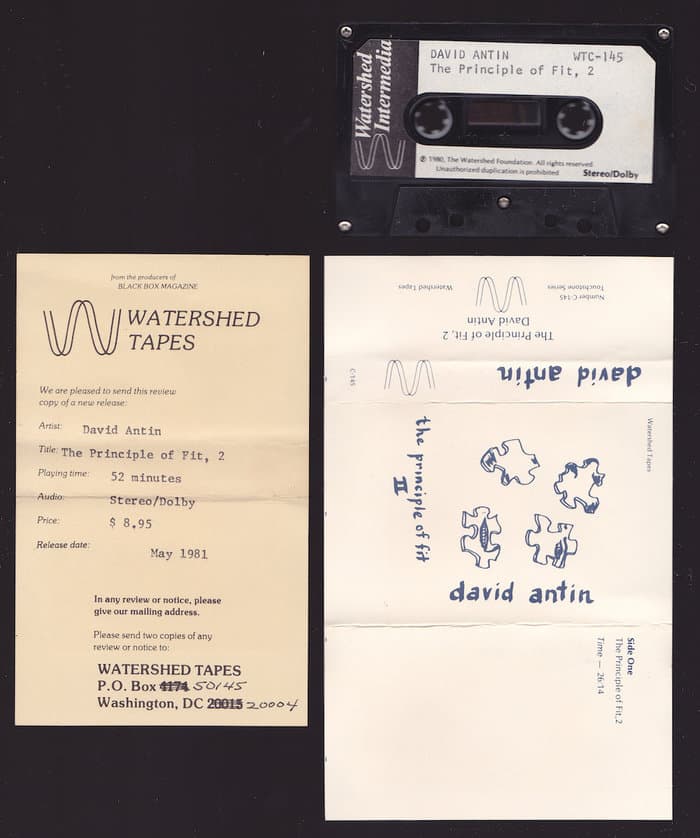 Watershed
Intermedia
DAVID ANTIN WTC-145
The Principle of Fit, 2
℗ 1980, The Watershed Foundation. All rights reserved
Unauthorized duplication is prohibited
Stereo/Dolby
from the producers of
BLACK BOX MAGAZINE
WATERSHED
TAPES
We are pleased to send this review
copy of a new release:
Artist: David Antin
Title: The Principle of Fit, 2
Playing time: 52 minutes
Audio: Stereo/Dolby
Price: $ 8.95
Release date: May 1981
In any review or notice, please
give our mailing address.
Please send two copies of any
review or notice to:
WATERSHED TAPES
P.O. Box 4174 50145
Washington, DC 20015 20004
Number C-145
Touchstone Series
Watershed Tapes
David Antin
The Principle of Fit, 2
david antin
C-145
Watershed Tapes
the principle of fit
II
david antin
Side One
The Principle of Fit, 2
Time — 26:14